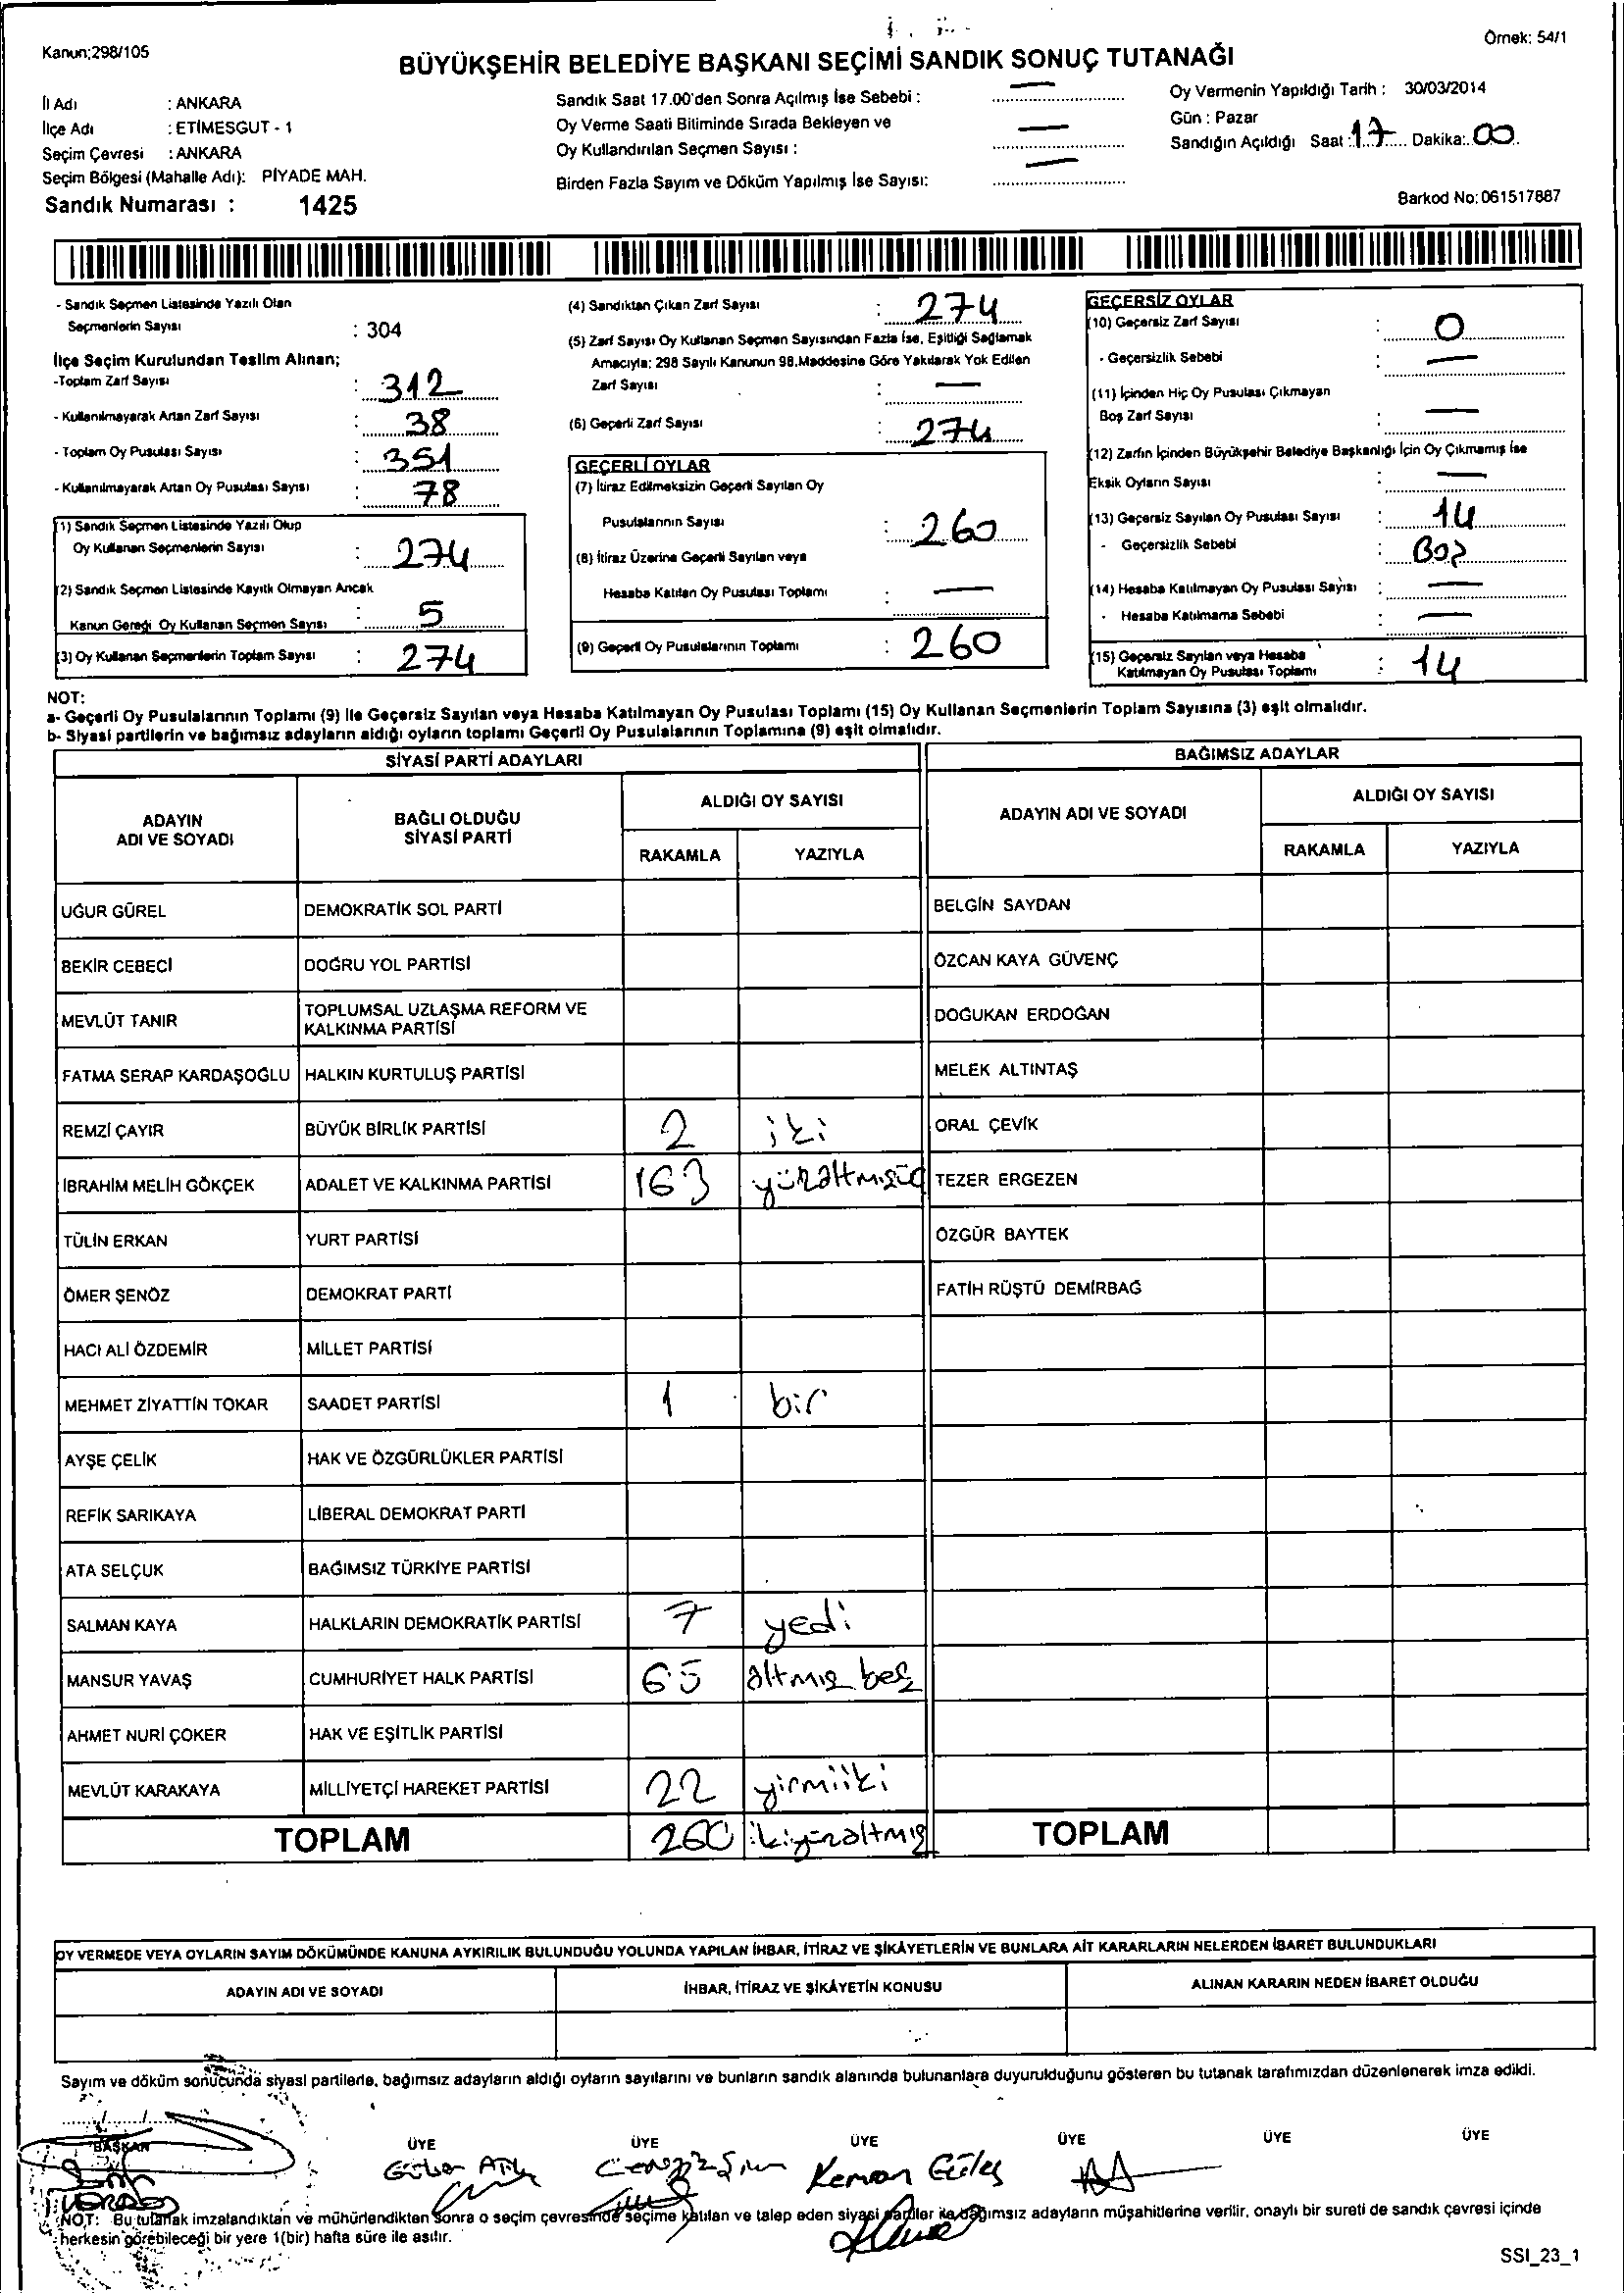 Kanun;298/105
Örnek: 54/1
BÜYÜKŞEHİR BELEDİYE BAŞKANI SEÇİMİ SANDIK SONUÇ TUTANAĞI
İl Adı : ANKARA
İlçe Adı : ETİMESGUT - 1
Seçim Çevresi : ANKARA
Seçim Bölgesi (Mahalle Adı): PİYADE MAH.
Sandık Numarası : 1425
Sandık Saat 17.00'den Sonra Açılmış İse Sebebi : —
Oy Verme Saati Bitiminde Sırada Bekleyen ve
Oy Kullandırılan Seçmen Sayısı : —
Birden Fazla Sayım ve Döküm Yapılmış İse Sayısı: —
Oy Vermenin Yapıldığı Tarih : 30/03/2014
Gün : Pazar
Sandığın Açıldığı Saat : 17 Dakika: 00
Barkod No: 061517887
- Sandık Seçmen Listesinde Yazılı Olan
Seçmenlerin Sayısı : 304
İlçe Seçim Kurulundan Teslim Alınan;
-Toplam Zarf Sayısı : 312
- Kullanılmayarak Artan Zarf Sayısı : 38
- Toplam Oy Pusulası Sayısı : 351
- Kullanılmayarak Artan Oy Pusulası Sayısı : 78
(1) Sandık Seçmen Listesinde Yazılı Olup
Oy Kullanan Seçmenlerin Sayısı : 274
(2) Sandık Seçmen Listesinde Kayıtlı Olmayan Ancak
Kanun Gereği Oy Kullanan Seçmen Sayısı : 5
(3) Oy Kullanan Seçmenlerin Toplam Sayısı : 274
(4) Sandıktan Çıkan Zarf Sayısı : 274
(5) Zarf Sayısı Oy Kullanan Seçmen Sayısından Fazla İse, Eşitliği Sağlamak
Amacıyla; 298 Sayılı Kanunun 98.Maddesine Göre Yakılarak Yok Edilen
Zarf Sayısı : —
(6) Geçerli Zarf Sayısı : 274
GEÇERLİ OYLAR
(7) İtiraz Edilmeksizin Geçerli Sayılan Oy
Pusulalarının Sayısı : 260
(8) İtiraz Üzerine Geçerli Sayılan veya
Hesaba Katılan Oy Pusulası Toplamı : —
(9) Geçerli Oy Pusulalarının Toplamı : 260
GEÇERSİZ OYLAR
(10) Geçersiz Zarf Sayısı : 0
- Geçersizlik Sebebi : —
(11) İçinden Hiç Oy Pusulası Çıkmayan
Boş Zarf Sayısı : —
(12) Zarfın İçinden Büyükşehir Belediye Başkanlığı İçin Oy Çıkmamış İse
Eksik Oyların Sayısı : —
(13) Geçersiz Sayılan Oy Pusulası Sayısı : 14
- Geçersizlik Sebebi : Boş
(14) Hesaba Katılmayan Oy Pusulası Sayısı : —
- Hesaba Katılmama Sebebi : —
(15) Geçersiz Sayılan veya Hesaba
Katılmayan Oy Pusulası Toplamı : 14
NOT:
a- Geçerli Oy Pusulalarının Toplamı (9) İle Geçersiz Sayılan veya Hesaba Katılmayan Oy Pusulası Toplamı (15) Oy Kullanan Seçmenlerin Toplam Sayısına (3) eşit olmalıdır.
b- Siyasi partilerin ve bağımsız adayların aldığı oyların toplamı Geçerli Oy Pusulalarının Toplamına (9) eşit olmalıdır.
SİYASİ PARTİ ADAYLARI
BAĞIMSIZ ADAYLAR
ADAYIN ADI VE SOYADI
BAĞLI OLDUĞU SİYASİ PARTİ
ALDIĞI OY SAYISI
RAKAMLA YAZIYLA
ADAYIN ADI VE SOYADI
ALDIĞI OY SAYISI
RAKAMLA YAZIYLA
UĞUR GÜREL DEMOKRATİK SOL PARTİ BELGİN SAYDAN
BEKİR CEBECİ DOĞRU YOL PARTİSİ ÖZCAN KAYA GÜVENÇ
MEVLÜT TANIR TOPLUMSAL UZLAŞMA REFORM VE KALKINMA PARTİSİ DOĞUKAN ERDOĞAN
FATMA SERAP KARDAŞOĞLU HALKIN KURTULUŞ PARTİSİ MELEK ALTINTAŞ
REMZİ ÇAYIR BÜYÜK BİRLİK PARTİSİ 2 iki ORAL ÇEVİK
İBRAHİM MELİH GÖKÇEK ADALET VE KALKINMA PARTİSİ 163 yüzaltmışüç TEZER ERGEZEN
TÜLİN ERKAN YURT PARTİSİ ÖZGÜR BAYTEK
ÖMER ŞENÖZ DEMOKRAT PARTİ FATİH RÜŞTÜ DEMİRBAĞ
HACI ALİ ÖZDEMİR MİLLET PARTİSİ
MEHMET ZİYATTİN TOKAR SAADET PARTİSİ 1 bir
AYŞE ÇELİK HAK VE ÖZGÜRLÜKLER PARTİSİ
REFİK SARIKAYA LİBERAL DEMOKRAT PARTİ
ATA SELÇUK BAĞIMSIZ TÜRKİYE PARTİSİ
SALMAN KAYA HALKLARIN DEMOKRATİK PARTİSİ 7 yedi
MANSUR YAVAŞ CUMHURİYET HALK PARTİSİ 65 altmış beş
AHMET NURİ ÇOKER HAK VE EŞİTLİK PARTİSİ
MEVLÜT KARAKAYA MİLLİYETÇİ HAREKET PARTİSİ 22 yirmiiki
TOPLAM 260 ikiyüzaltmış TOPLAM
OY VERMEDE VEYA OYLARIN SAYIM DÖKÜMÜNDE KANUNA AYKIRILIK BULUNDUĞU YOLUNDA YAPILAN İHBAR, İTİRAZ VE ŞİKÂYETLERİN VE BUNLARA AİT KARARLARIN NELERDEN İBARET BULUNDUKLARI
ADAYIN ADI VE SOYADI İHBAR, İTİRAZ VE ŞİKÂYETİN KONUSU ALINAN KARARIN NEDEN İBARET OLDUĞU
Sayım ve döküm sonucunda siyasi partilerle, bağımsız adayların aldığı oyların sayılarını ve bunların sandık alanında bulunanlara duyurulduğunu gösteren bu tutanak tarafımızdan düzenlenerek imza edildi.
BAŞKAN ÜYE ÜYE ÜYE ÜYE ÜYE ÜYE
Kenan Güleş
NOT: Bu tutanak imzalandıktan ve mühürlendikten sonra o seçim çevresinde seçime katılan ve talep eden siyasi partiler ile bağımsız adayların müşahitlerine verilir, onaylı bir sureti de sandık çevresi içinde
herkesin görebileceği bir yere 1(bir) hafta süre ile asılır.
SSI_23_1